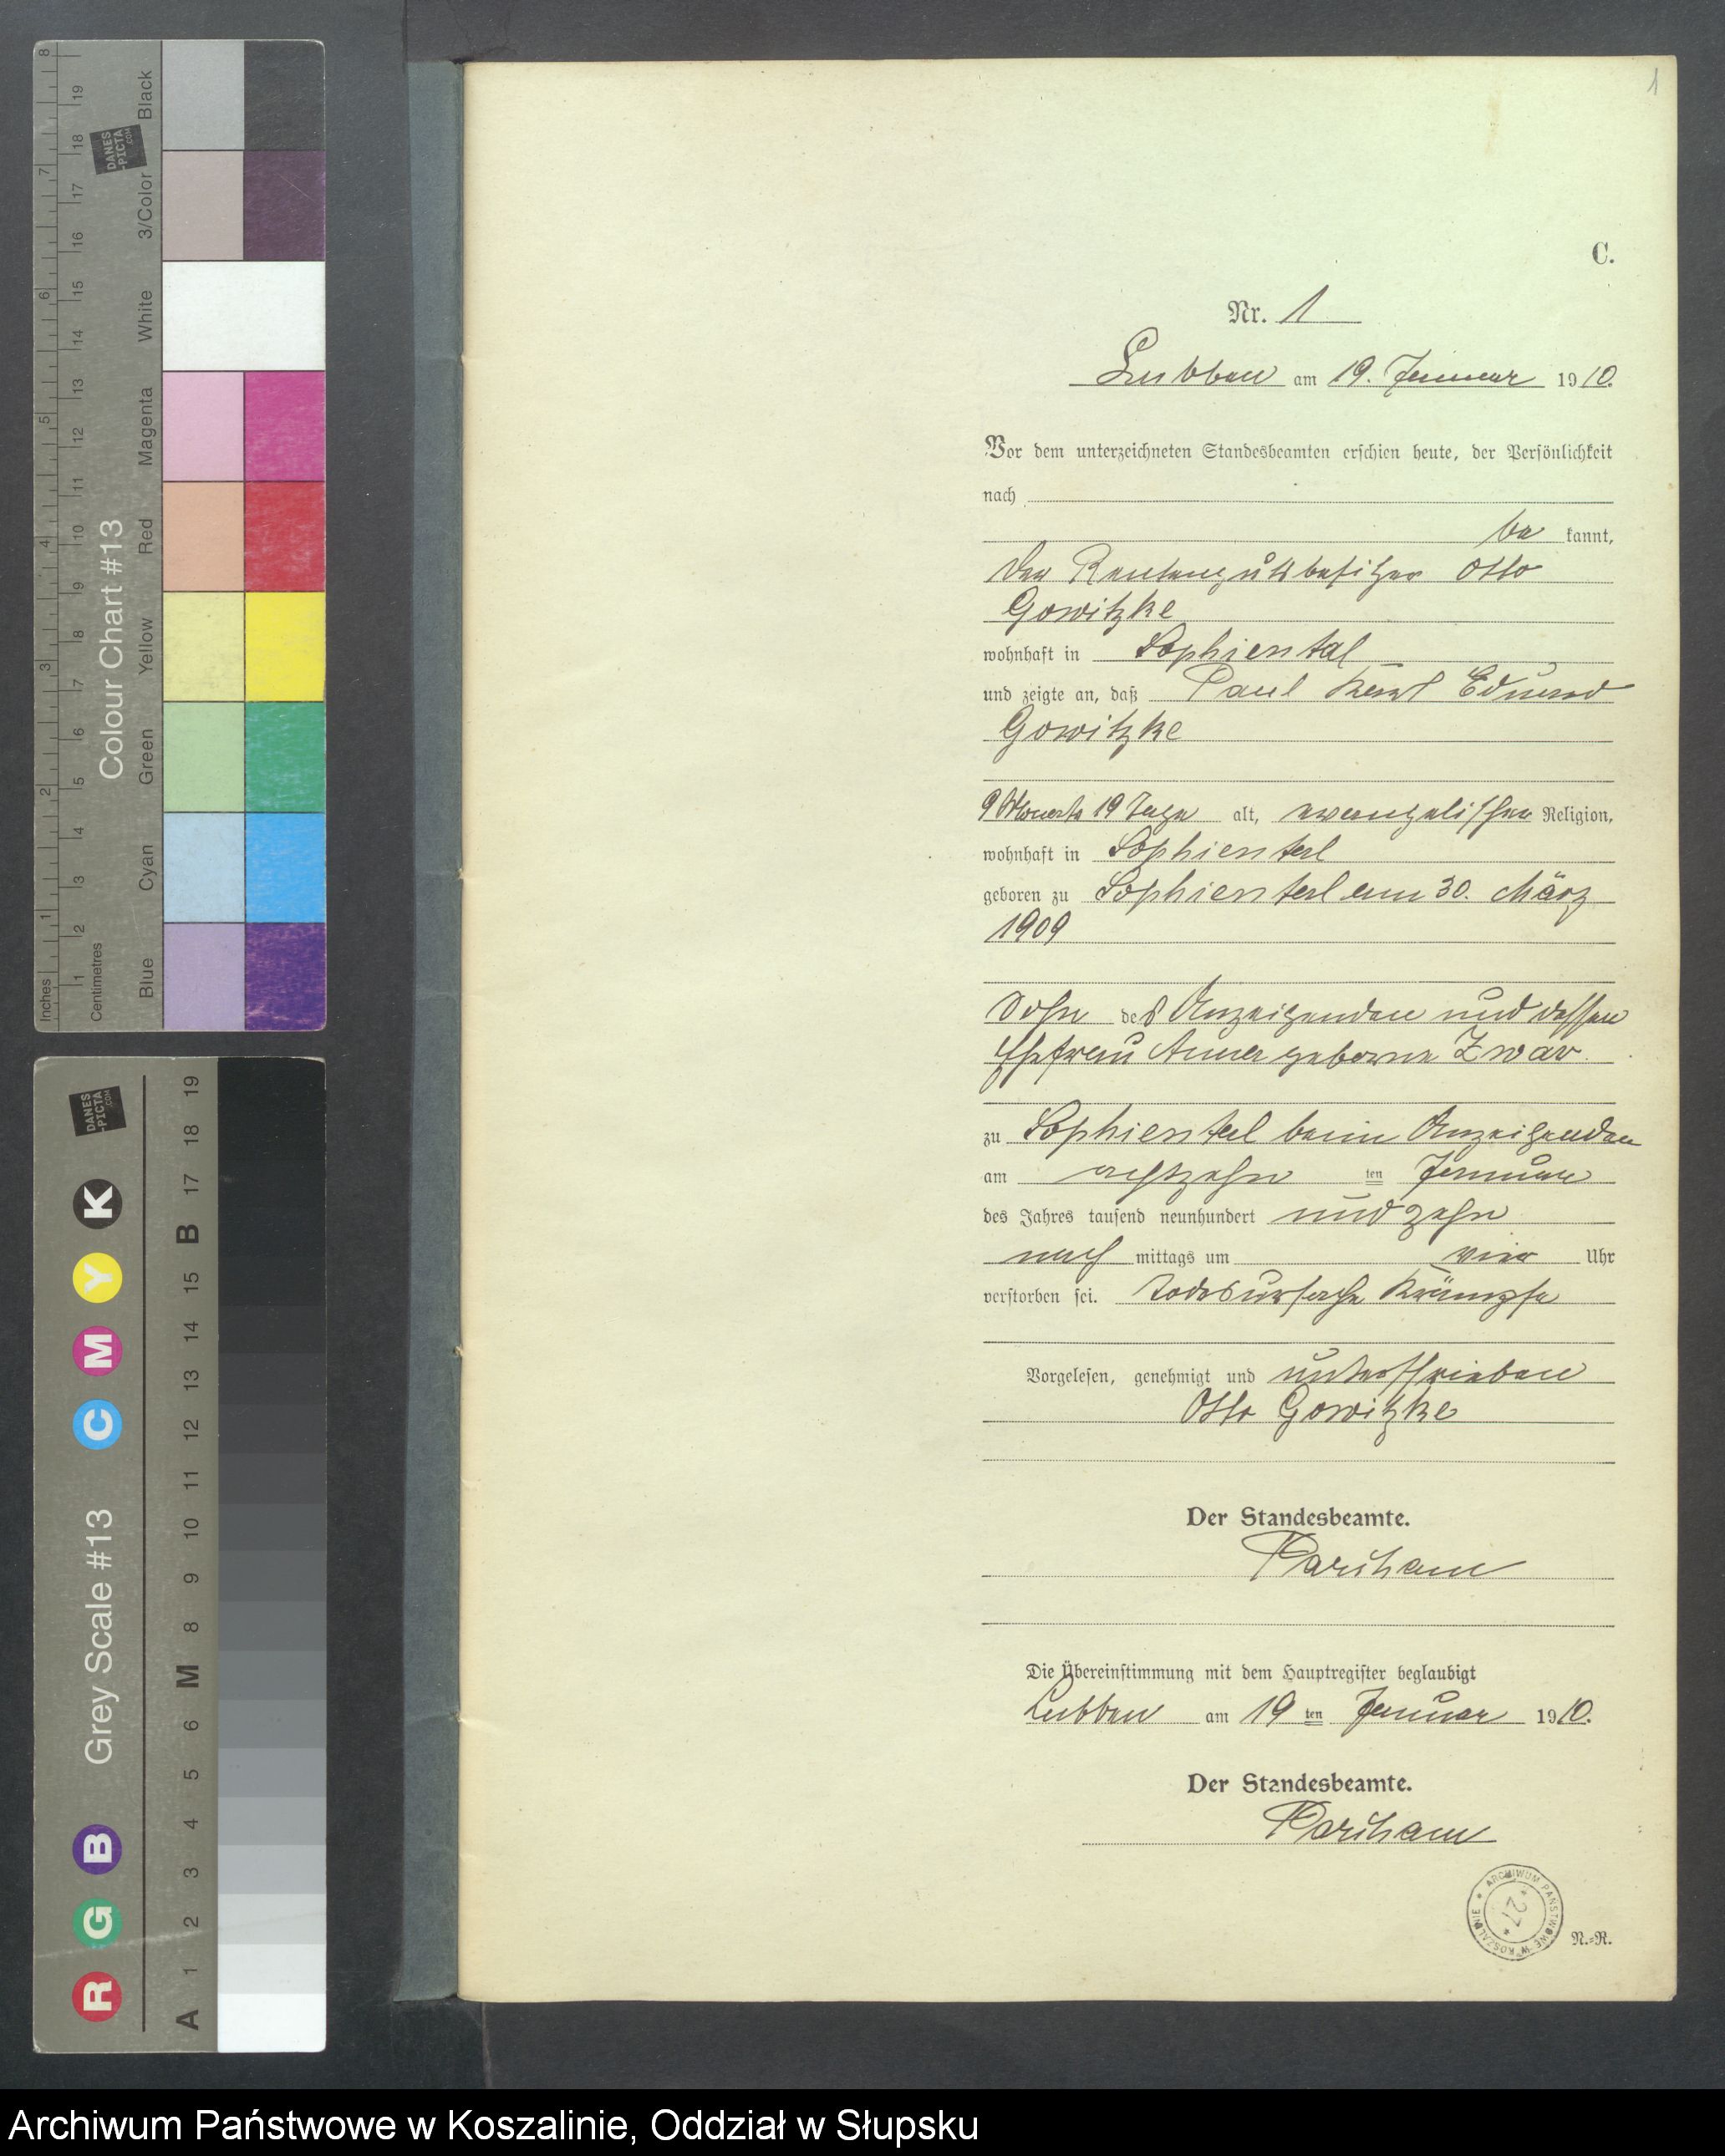 1
C.
Nr. 1
Lubben am 19. Januar 1910.
Vor dem unterzeichneten Standesbeamten erschien heute, der Persönlichkeit
nach
be kannt,
der Rentengutsbesitzer Otto
Gowitzke
wohnhaft in Sophiental
und zeigte an, daß Paul Karl Eduard
Gowitzke
9 Monate 19 Tage alt, evangelischer Religion,
wohnhaft in Sophiental
geboren zu Sophiental am 30. März
1909
Sohn des Anzeigenden und dessen
Ehefrau Anna geborne Zwar.
zu Sophiental beim Anzeigenden
am achtzehn ten Januar
des Jahres tausend neunhundert und zehn
nach mittags um vier Uhr
verstorben sei. Todesursache Krämpfe
Vorgelesen, genehmigt und unterschrieben
Otto Gowitzke
Der Standesbeamte.
Die Übereinstimmung mit dem Hauptregister beglaubigt
Lubben am 19 ten Januar 1910.
Der Standesbeamte.
ARCHIWUM PAŃSTWOWE W KOSZALINIE
27
N.=R.
Colour Chart #13
Blue Cyan Green Yellow Red Magenta White 3/Color Black
Inches 1 2 3 4 5 6 7 8
Centimetres 1 2 3 4 5 6 7 8 9 10 11 12 13 14 15 16 17 18 19
DANES-PICTA.COM
Grey Scale #13
R G B C M Y K
A 1 2 3 4 5 6 M 8 9 10 11 12 13 14 15 B 17 18 19
DANES-PICTA.COM
Archiwum Państwowe w Koszalinie, Oddział w Słupsku